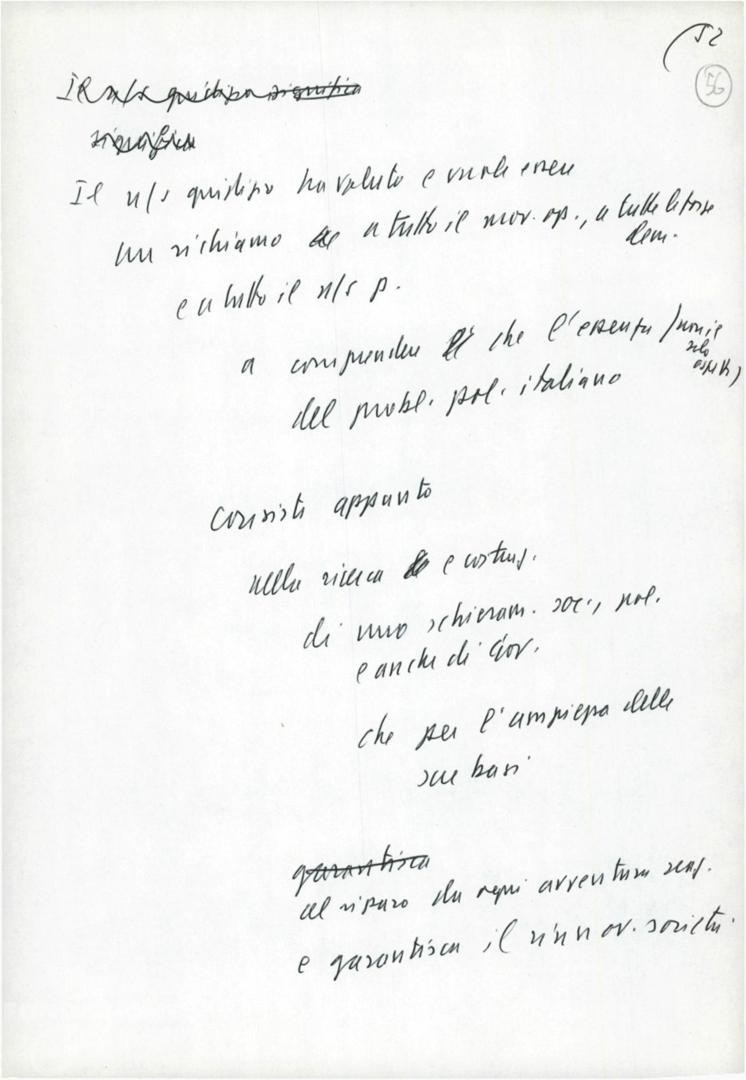 52
56
Il n/s giudizio significa
significa
Il n/s giudizio ha voluto e vuole essere
un richiamo a tutto il mov. op., a tutte le forze
dem.
e a tutto il n/s p.
a comprendere che l'essenza (non i
soli
aspetti)
del probl. pol. italiano
consiste appunto
nella ricerca e costruz.
di uno schieram. soc., pol.
e anche di Gov.
che per l'ampiezza delle
sue basi
garantisca
al riparo da ogni avventura reaz.
e garantisca il rinnov. società.